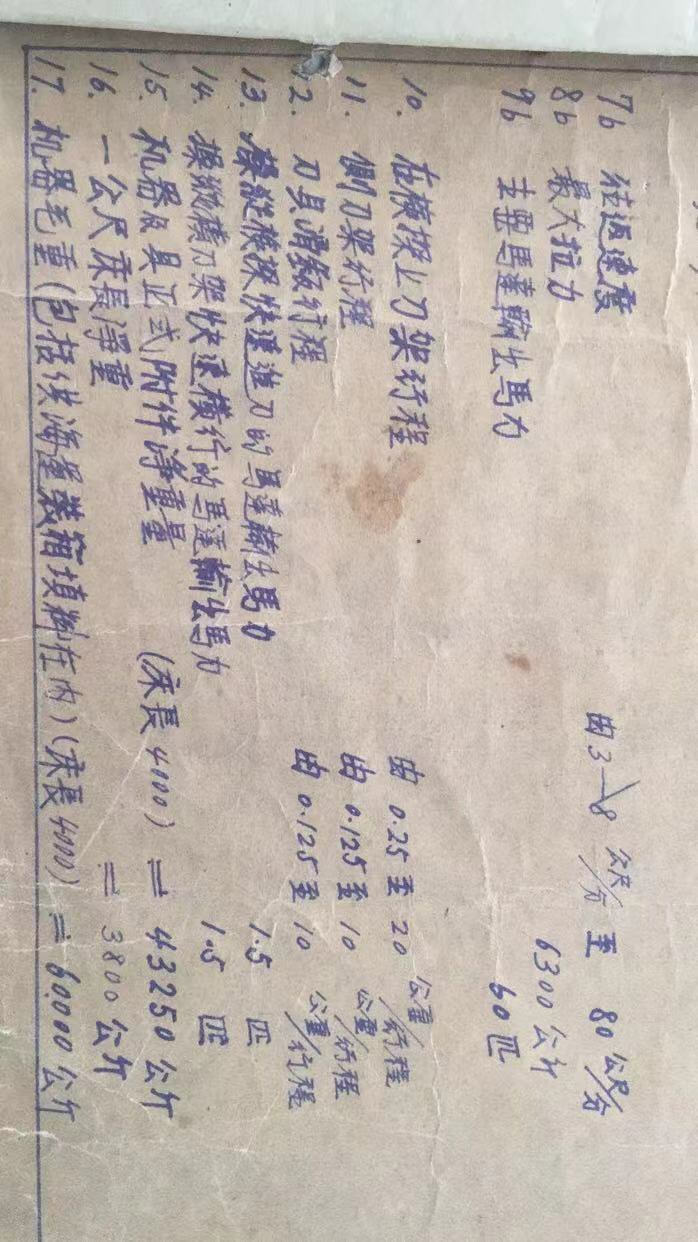 7b 往返速度 由3—8 公尺/分 至 80 公尺/分
8b 最大拉力 6300 公斤
9b 主要馬達輸出馬力 60 匹
10. 在橫樑上刀架行程 由 0.25 至 20 公厘/行程
11. 側刀架行程 由 0.125 至 10 公厘/行程
12. 刀具滑鞍行程 由 0.125 至 10 公厘/行程
13. 操縱橫樑快速進刀的馬達輸出馬力 1.5 匹
14. 操縱橫刀架快速橫行的馬達輸出馬力 1.5 匹
15. 机器及其正式附件淨重量 (床長 4000) = 43250 公斤
16. 一公尺床長淨重 = 3800 公斤
17. 机器毛重(包括供海運裝箱填料在內)(床長 4000) = 60000 公斤